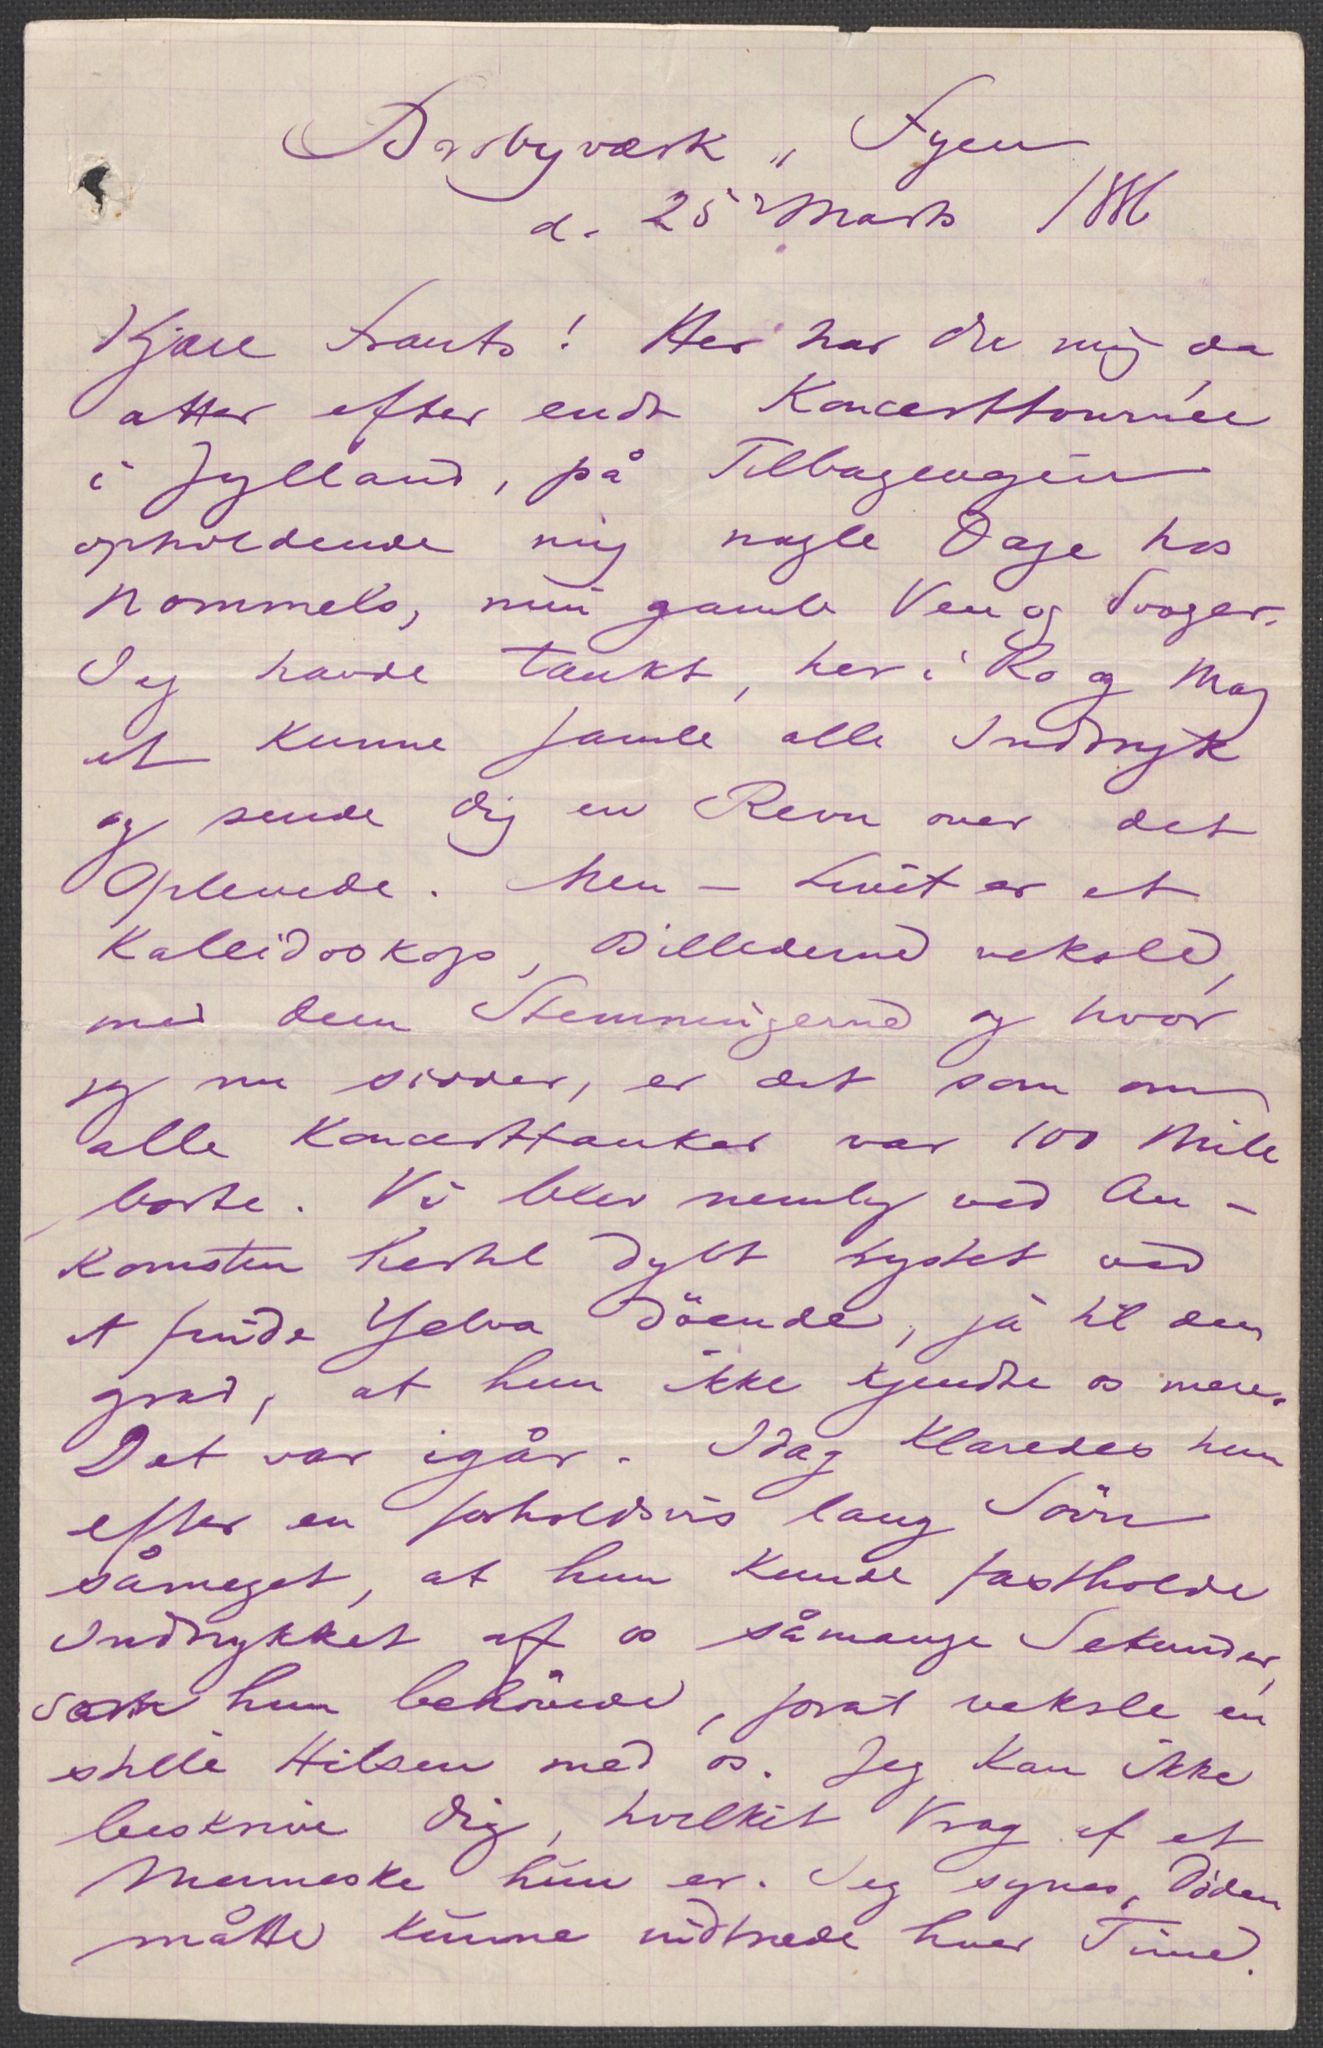 Brobyværk, Fyen
d. 25 Marts 1886
Kjære Frants! Her har du mig da
atter efter endt Koncerttournée
i Jylland, på Tilbagevejen
opholdende mig nogle Dage hos
Hommels, min gamle Ven og Svoger.
Jeg havde tænkt, her i Ro og Mag
at kunne samle alle Indtryk
og sende dig en Revu over det
Oplevede. Men – Livet er et
Kaleidoskop, Billederne veksle,
med dem Stemningerne og hvor
jeg nu sidder, er det som om
alle Koncerttanker var 100 Mile
borte. Vi blev nemlig ved An-
komsten hertil dybt rystet ved
at finde Yelva döende, ja til den
grad, at hun ikke kjendte os mere.
Det var igår. Idag klaredes hun
efter en forholdsvis lang Sövn
såmeget, at hun kunde fastholde
Indtrykket af os såmange Sekunder,
som hun behövede, forat veksle en
stille Hilsen med os. Jeg kan ikke
beskrive dig, hvilket Vrag af et
Menneske hun er. Jeg synes, Döden
måtte kunne indtræde hver Time.